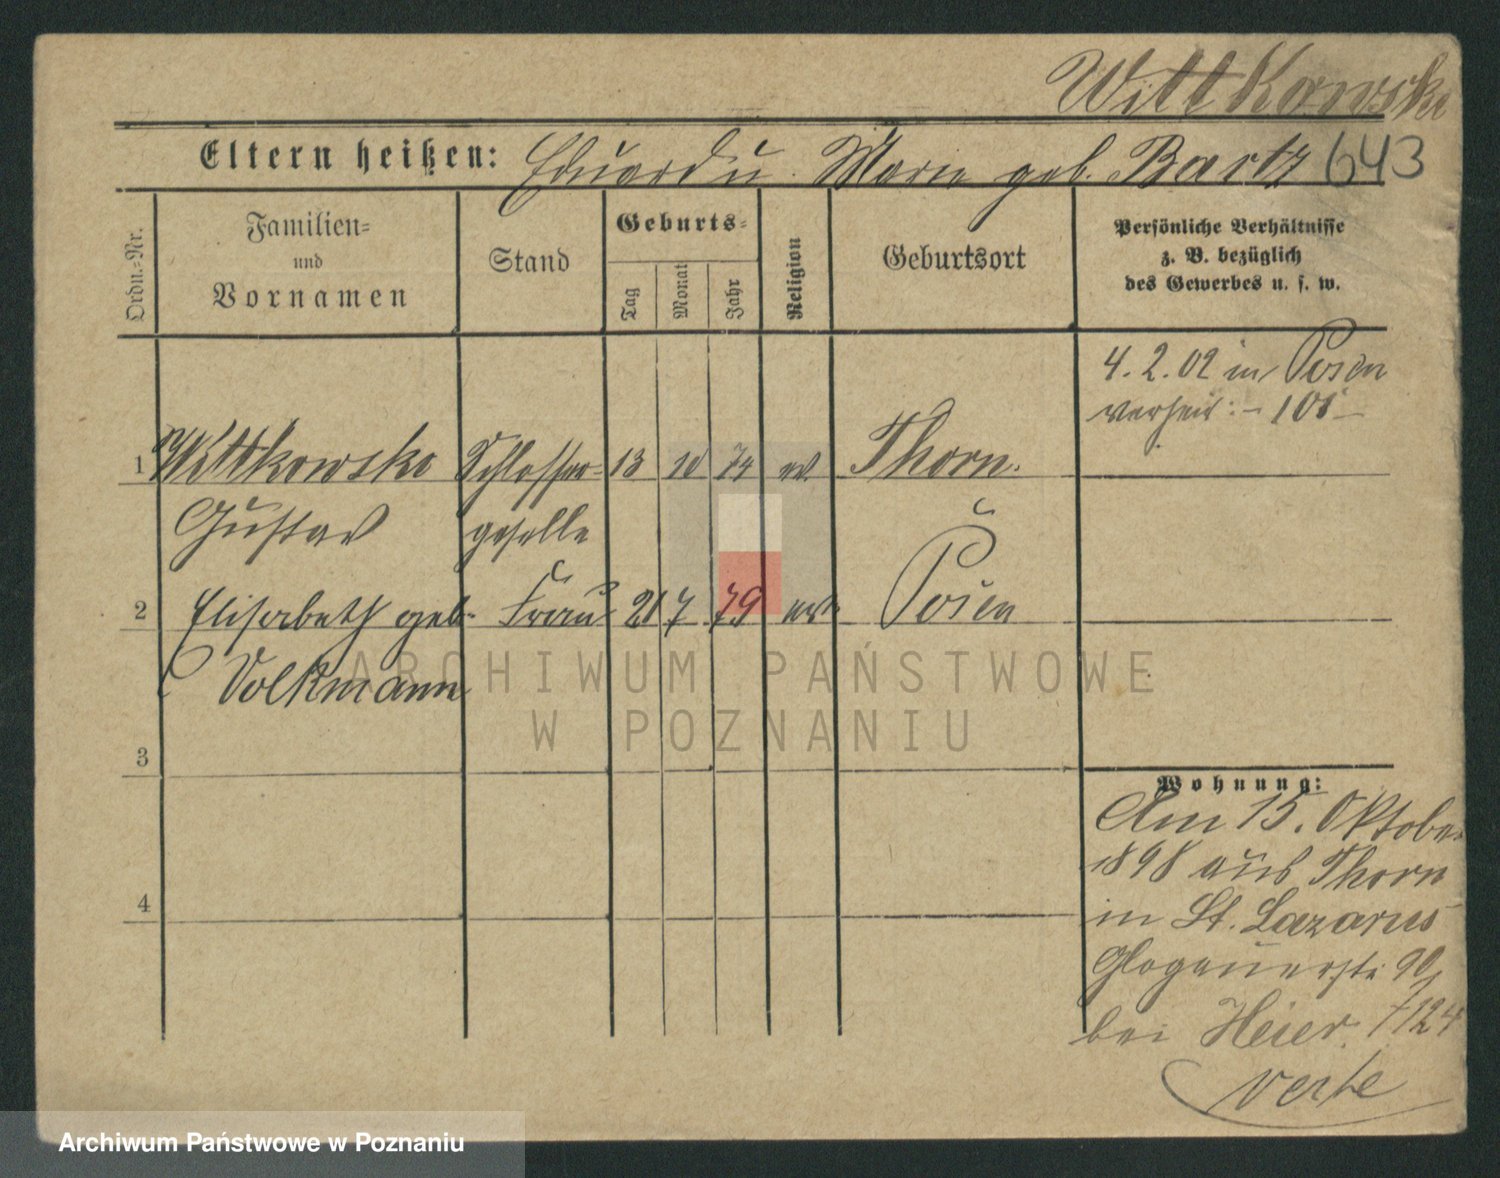 Wittkowski
Eltern heißen: Eduard u. Marie geb. Bartz 643
Ordn.-Nr.
Familien-
und
Vornamen
Stand
Geburts-
Tag
Monat
Jahr
Religion
Geburtsort
Persönliche Verhältnisse
z. B. bezüglich
des Gewerbes u. s. w.
4.2.02 in Posen
verheir:
1 Wittkowski Schlosser- 13 10 74 ev. Thorn.
Gustav geselle
2 Elisabeth geb. Frau 21 7 79 ev. Posen
Volkmann
3
4
Wohnung:
Am 15. Oktober
1898 aus Thorn
in St. Lazarus
Glogauerstr. 90
bei Heier. 7124
verte
ARCHIWUM PAŃSTWOWE
W POZNANIU
Archiwum Państwowe w Poznaniu